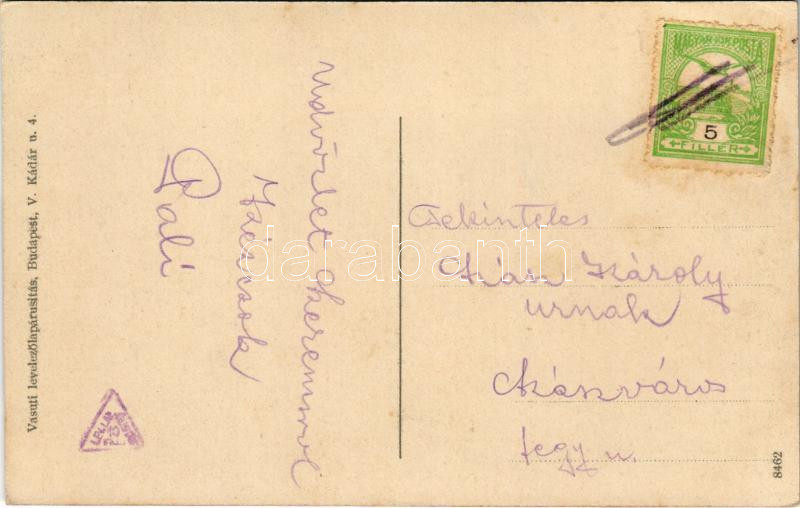 Vasuti levelezőlapárusitás, Budapest, V. Kádár u. 4.
Üdvözlet
Kézcsók
Pali
MAGYAR KIR. POSTA
5
FILLÉR
Tekintetes
Szász Károly
urnak
Szászváros
fegy u.
8462
darabanth